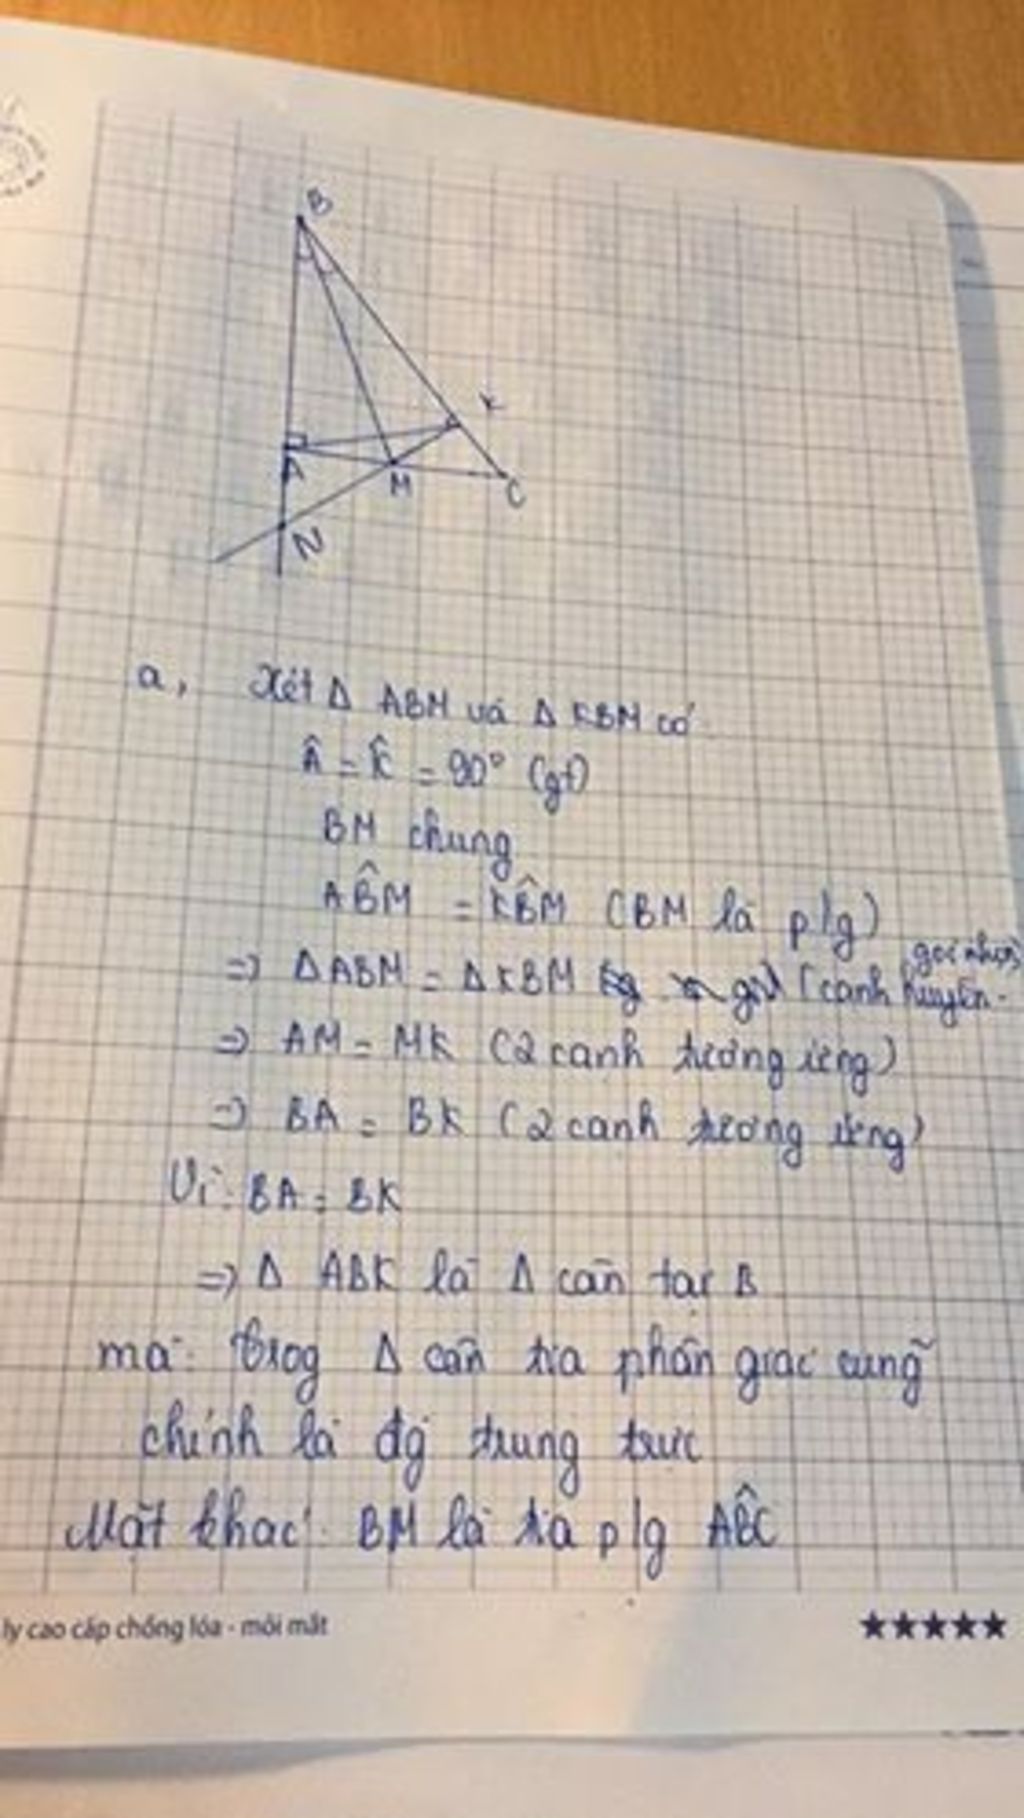 B
K
A
M
C
N
a, Xét Δ ABM và Δ KBM có
Â = K̂ = 90° (gt)
BM chung
AB̂M = KB̂M (BM là p/g)
góc nhọn
=> ΔABM = ΔKBM (cạnh huyền -
=> AM = MK (2 cạnh tương ứng)
=> BA = BK (2 cạnh tương ứng)
Vì: BA = BK
=> Δ ABK là Δ cân tại B
mà: trog Δ cân tia phân giác cũng
chính là đg trung trực
Mặt khác: BM là tia p/g AB̂C
ly cao cấp chống lóa - mỏi mắt
★★★★★